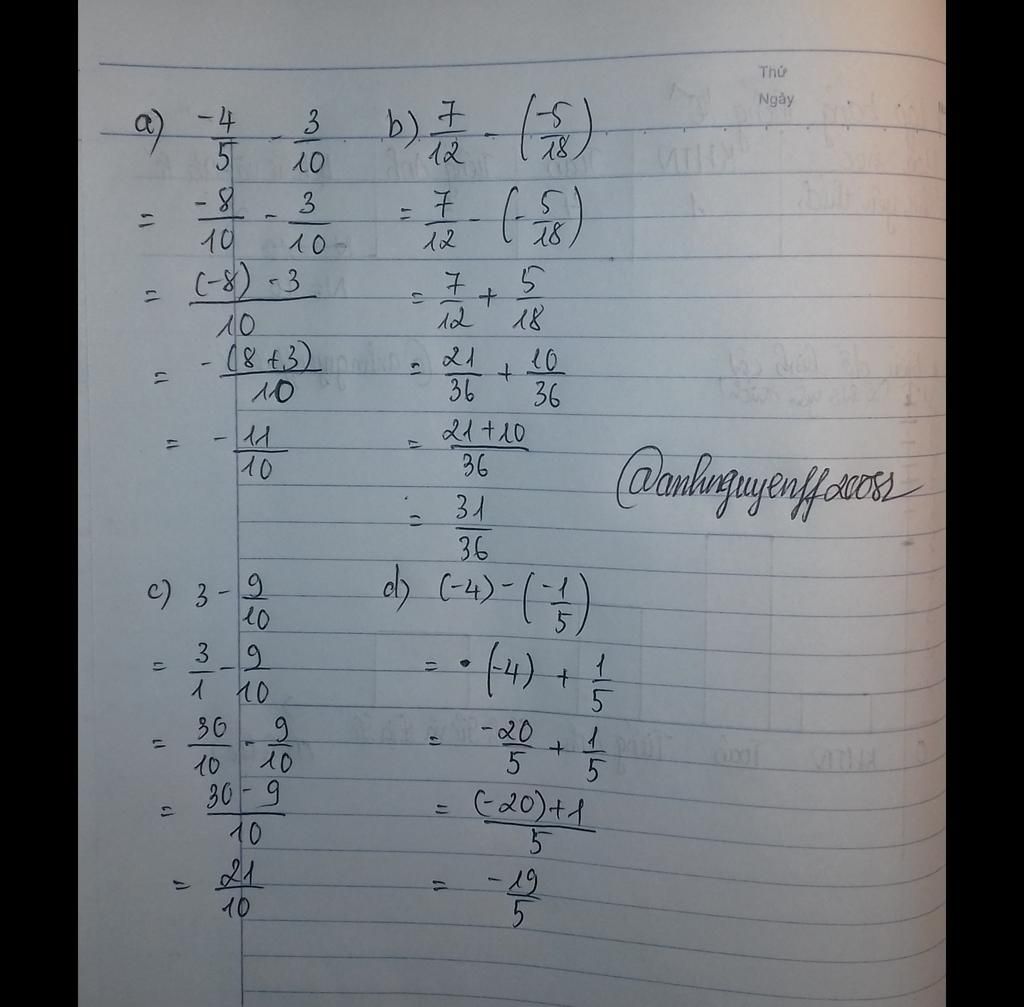 Thứ
Ngày
a) -4/5 - 3/10
= -8/10 - 3/10
= (-8) - 3/10
= -(8+3)/10
= -11/10
b) 7/12 - (-5/18)
= 7/12 - (-5/18)
= 7/12 + 5/18
= 21/36 + 10/36
= 21+10/36
= 31/36
@anhnguyenff20082
c) 3 - 9/10
= 3/1 - 9/10
= 30/10 - 9/10
= 30-9/10
= 21/10
d) (-4) - (-1/5)
= (-4) + 1/5
= -20/5 + 1/5
= (-20)+1/5
= -19/5